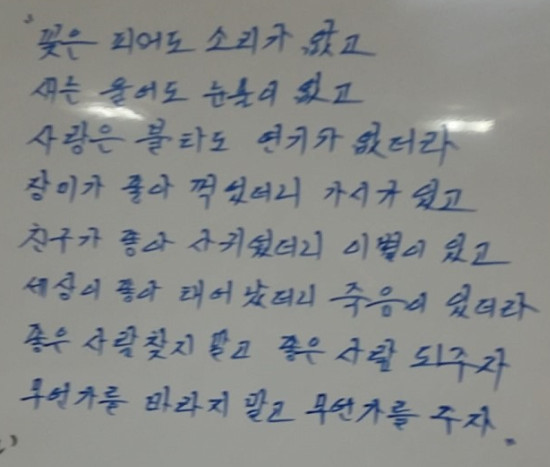 꽃은 피어도 소리가 없고
새는 울어도 눈물이 없고
사랑은 불타도 연기가 없더라
장미가 좋아 꺽었더니 가시가 있고
친구가 좋아 사귀였더니 이별이 있고
세상이 좋아 태어났더니 죽음이 있더라
좋은 사람찾지 말고 좋은 사람 되주자
무언가를 바라지 말고 무언가를 주자.